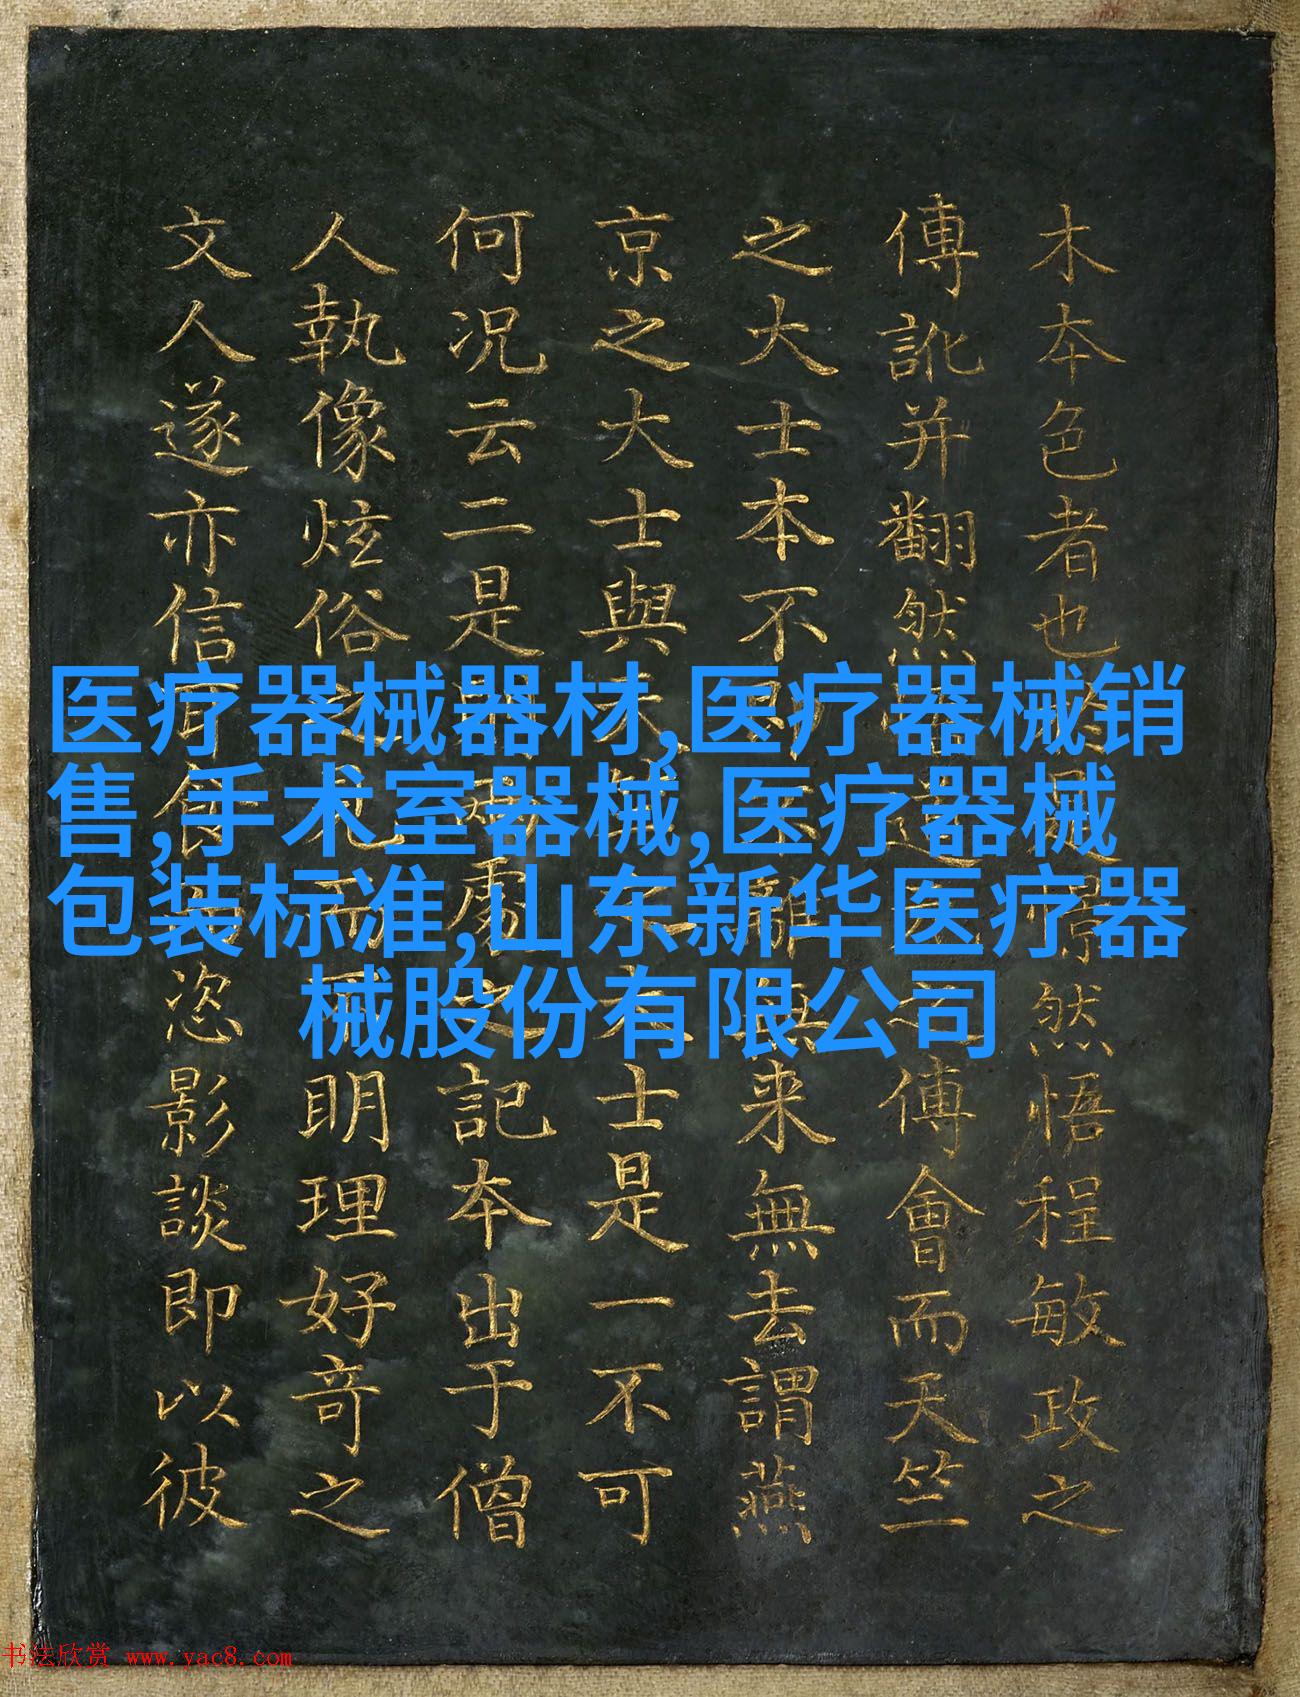 木夲色者也然悟程敏政之
傅訛并翻然之傅會而天竺
之大士本不離無来無去謂燕
京之大士與士是一不可
何况云二是處之記夲出于僧
人執像炫俗之而明理好奇之
文人遂亦信恣影談即以彼
医疗器械器材,医疗器械销
售,手术室器械,医疗器械
包装标准,山东新华医疗器
械股份有限公司
书法欣赏 www.yac8.com